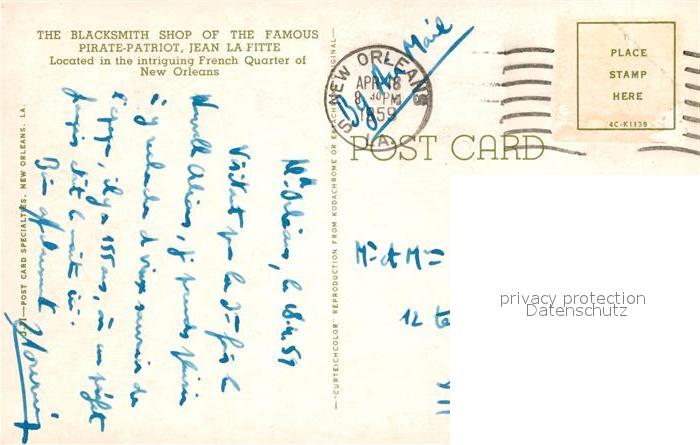 THE BLACKSMITH SHOP OF THE FAMOUS
PIRATE-PATRIOT, JEAN LA FITTE
Located in the intriguing French Quarter of
New Orleans
By Air Mail
NEW ORLEANS
APR 18
8 30 PM
1959
LA.
PLACE
STAMP
HERE
4C-K1139
POST CARD
POST CARD SPECIALTIES, NEW ORLEANS, LA.
"CURTEICHCOLOR" REPRODUCTION FROM KODACHROME OR
ORIGINAL
Nlle Orléans, le 18.4.59
Visitant pour la 3me fois la
Nouvelle Orléans, je prends plaisir
à y rechercher de vieux souvenirs de
il y a 155 ans, où un
Bien affectueusement
Mr et Mme
12
privacy protection
Datenschutz